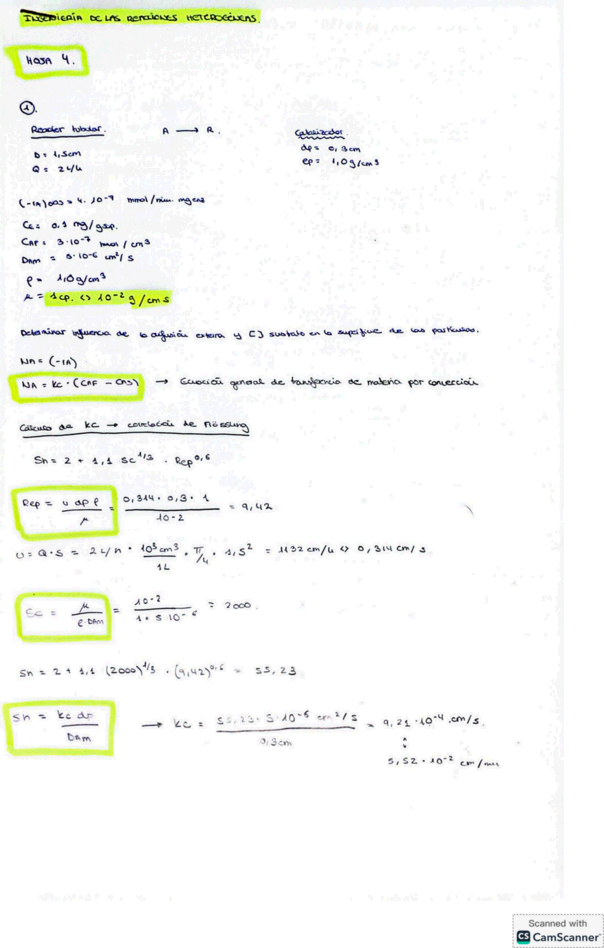 INGENIERÍA DE LAS REACCIONES HETEROGÉNEAS.
HOJA 4.
①.
Reactor tubular. A → R. Catalizador
D = 1,5cm dp = 0,3cm
Q = 2L/h ρp = 1,0g/cm³
(-rA)obs = 4. 10⁻⁷ mmol/min. mg cat
CE = 0.1 mg/g sop.
CAF = 3·10⁻⁷ mmol/cm³
DAM = 5·10⁻⁶ cm²/s
ρ = 1,0g/cm³
μ = 1cp. <> 10⁻² g/cm s
Determinar influencia de la difusión externa y [] sustrato en la superficie de las partículas.
NA = (-rA)
NA = kc · (CAF - CAS) → Ecuación general de transferencia de materia por convección
Cálculo de kc → correlación de Frössling
Sh = 2 + 1,1 Sc^1/3 · Rep^0,6
Rep = u dp ρ / μ = 0,314 · 0,3 · 1 / 10-2 = 9,42
U = Q·S = 2L/h · 10³cm³/1L · π/4 · 1,5² = 1132 cm/h <> 0,314 cm/s
Sc = μ / ρ·DAM = 10⁻² / 1 · 5 10⁻⁶ = 2000.
Sh = 2 + 1,1 (2000)^1/3 · (9,42)^0,6 = 55,23
Sh = kc dp / DAM → kc = 55,23 · 5·10⁻⁶ cm²/s / 0,3cm = 9,21·10⁻⁴ cm/s.
5,52 · 10⁻² cm/min
Scanned with
CS CamScanner